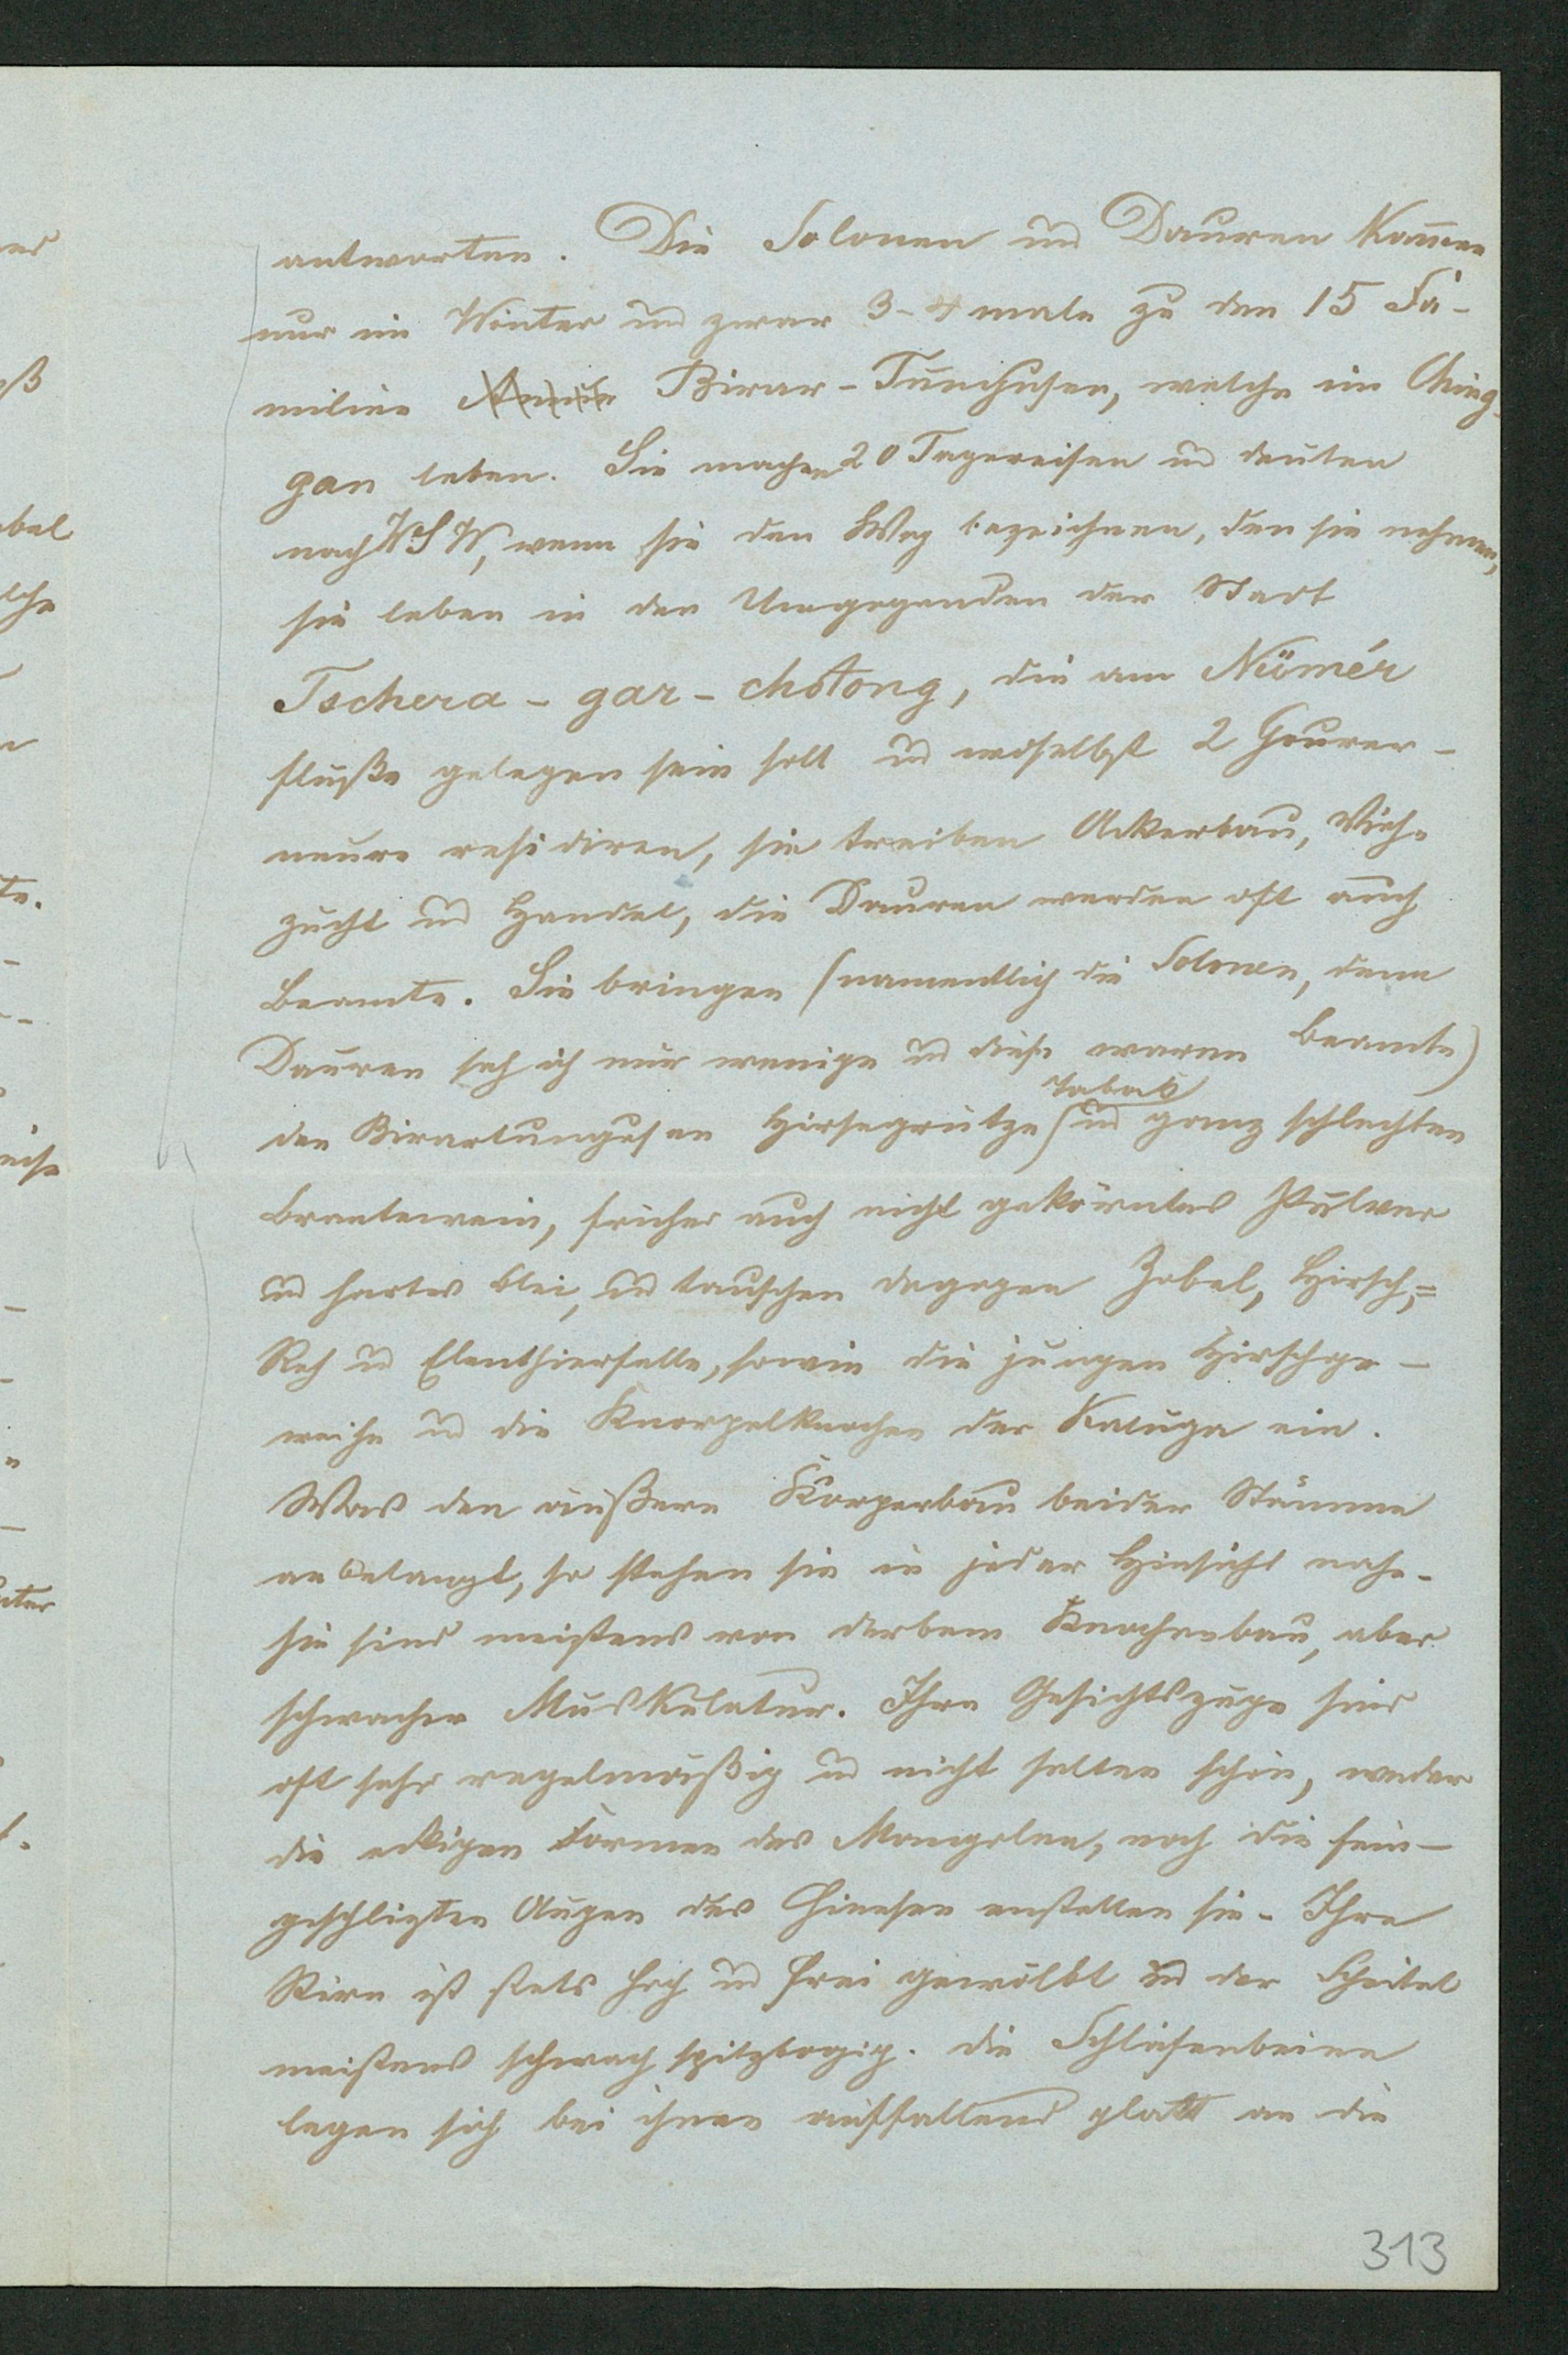 antworten. Die Solonen und Dauren kom̄en
nur im Winter und zwar 3-4 male zu den 15 Fa-
milien Birar-Tungusen, welche im Ching-
gan leben. Sie machen 20 Tagereisen und deuten
nach WSW, wenn sie den Weg bezeichnen, den sie nehmen,
sie leben in den Umgegenden der Stadt
Tschera-gar-chotong, die am Nömér
fluße gelegen sein soll und woselbst 2 Gouver-
neure residiren, sie treiben Ackerbau, Vieh-
zucht und Handel, die Dauren werden oft auch
Beamte. Sie bringen (namentlich die Solonen, denn
Dauren sah ich nur wenige und diese waren Beamte)
Tabak
den Birartungusen Hirsegrütze und ganz schlechten
Brantewein, früher auch nicht gekörntes Pulver
und hartes Blei, und tauschen dagegen Zobel, Hirsch,=
Reh und Elenthierfelle, sowie die jungen Hirschge-
weihe und die Knorpelknochen der Kaluga ein.
Was den äußern Körperbau beider Stämme
anbelangt, so stehen sie in jeder Hinsicht nahe.
sie sind meistens von derbem Knochenbau, aber
schwacher Muskulatur. Ihre Gesichtszüge sind
oft sehr regelmäßig und nicht selten schön, weder
die eckigen Formen des Mongolen, noch die fein-
geschlizten Augen des Chinesen enstellen sie. Ihre
Stirn ist stets hoch und frei gewölbt und der Scheitel
meistens schwach spitzbogig. die Schläfenbeine
legen sich bei ihnen auffallend platt an die
313